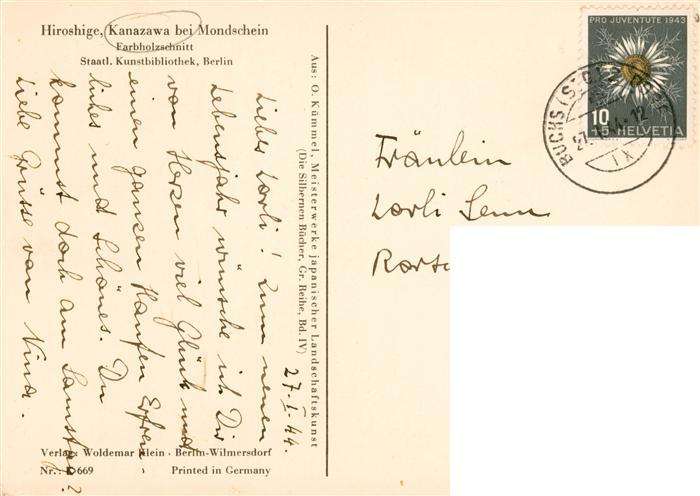 Hiroshige, Kanazawa bei Mondschein
Farbholzschnitt
Staatl. Kunstbibliothek, Berlin
27. I. 44.
Liebes Lorli! Zum neuen
Lebensjahr wünsche ich Dir
von Herzen viel Glück und
einen ganzen Haufen Erfreu-
liches und Schönes. Du
kommst doch am Samstag?
Liebe Grüsse von Nina.
Verlag: Woldemar Klein · Berlin-Wilmersdorf
Nr.: 669
Printed in Germany
Aus: O. Kümmel, Meisterwerke japanischer Landschaftskunst
(Die Silbernen Bücher, Gr. Reihe, Bd. IV)
PRO JUVENTUTE 1943
10
+5 HELVETIA
BUCHS
IX
Fräulein
Lorli Senn